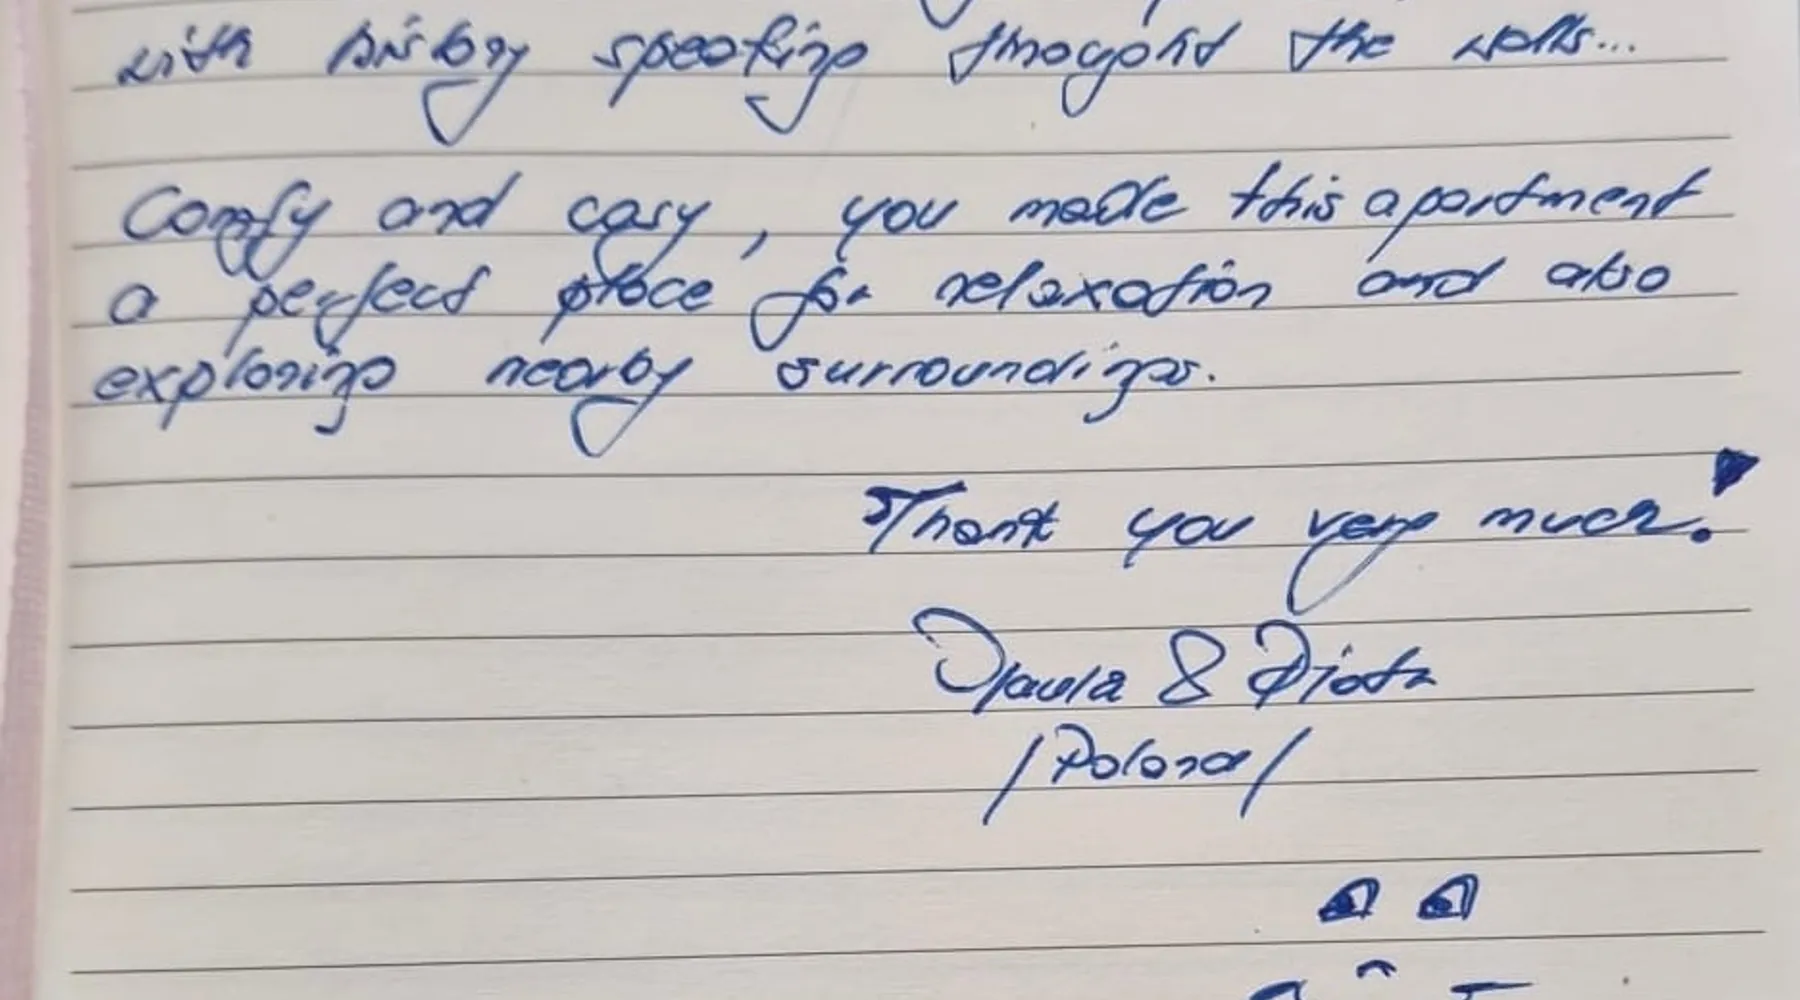 with history speaking throught the walls...
Comfy and cosy, you made this apartment
a perfect place for relaxation and also
exploring nearby surroundings.
Thank you very much!
Paula & Piotr
/Poland/